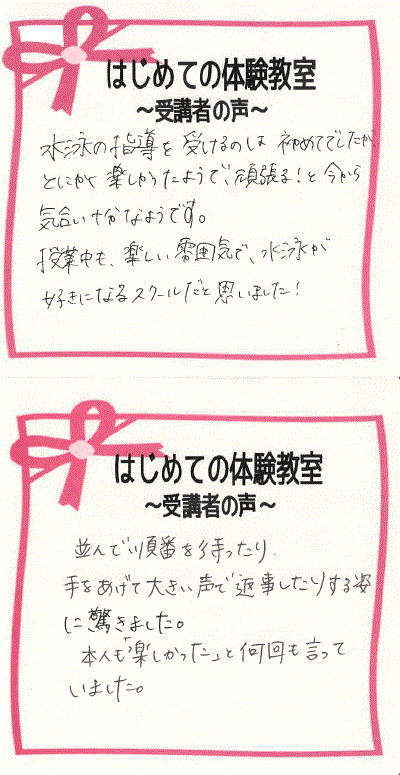 はじめての体験教室
～受講者の声～
水泳の指導を受けるのは初めてでしたが、
とにかく楽しかったようで、頑張る！と今から
気合い十分なようです。
授業中も、楽しい雰囲気で、水泳が
好きになるスクールだと思いました！
はじめての体験教室
～受講者の声～
並んで順番を待ったり
手をあげて大きい声で返事したりする姿
に驚きました。
本人も「楽しかった」と何回も言って
いました。